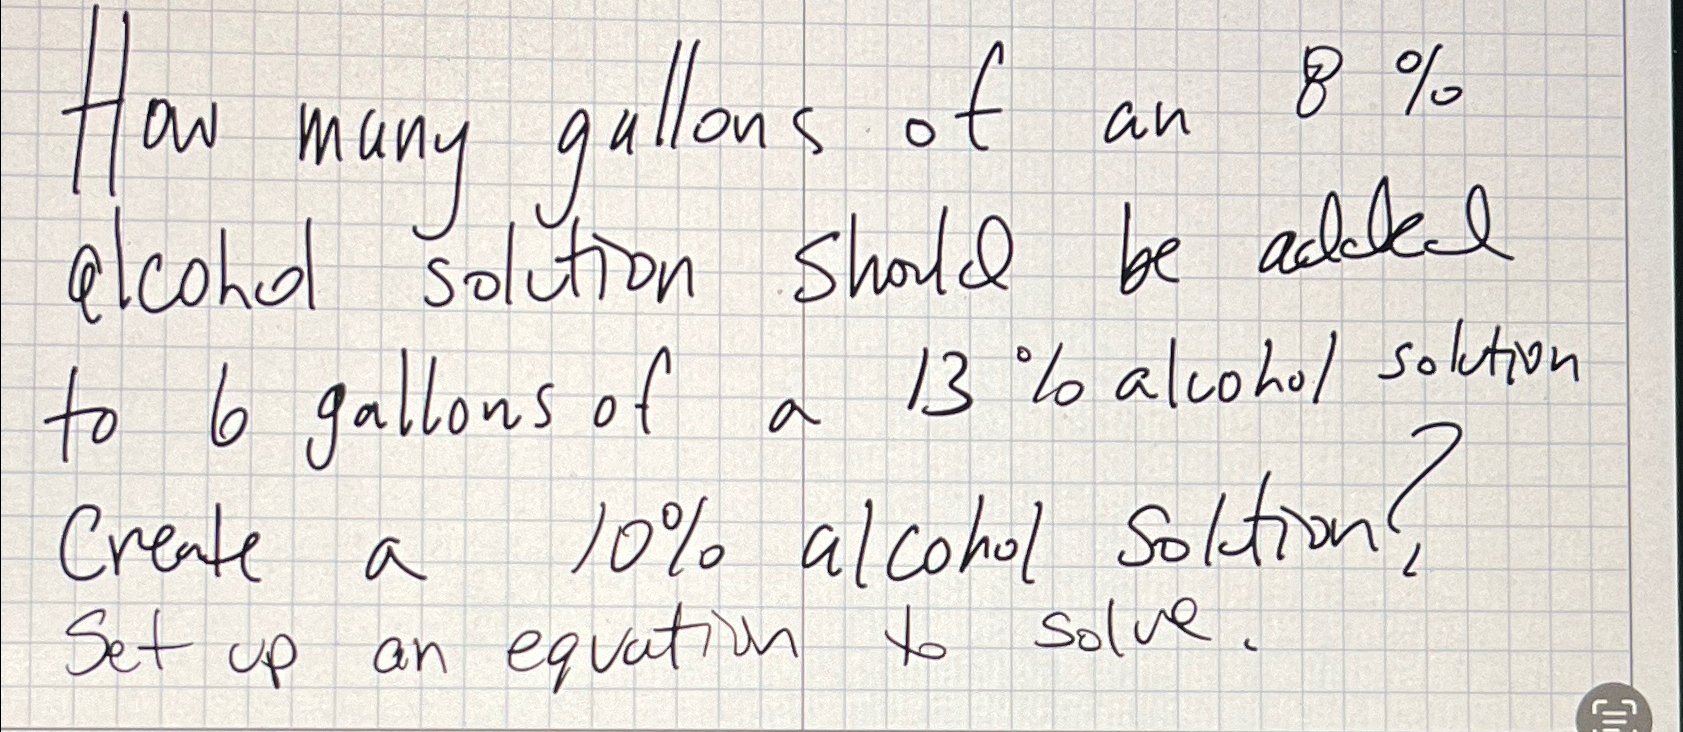 How many gallons of an 8%
alcohol solution should be added
to 6 gallons of a 13% alcohol solution
Create a 10% alcohol solution?
Set up an equation to solve.